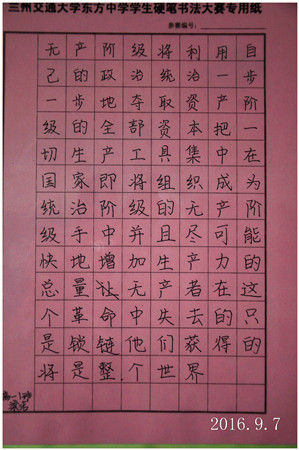 兰州交通大学东方中学学生硬笔书法大赛专用纸
参赛编号:
无产阶级将利用自
己的政治统治一步
一步地夺取资产阶
级的全部资本把一
切生产工具集中在
国家即将组织成为
统治阶级的无产阶
级手中并且尽可能
快地增加生产力的
总量让无产者在这
个革命中失去的只
是锁链他们获得的
将是整个世界
高一1班
2016.9.7